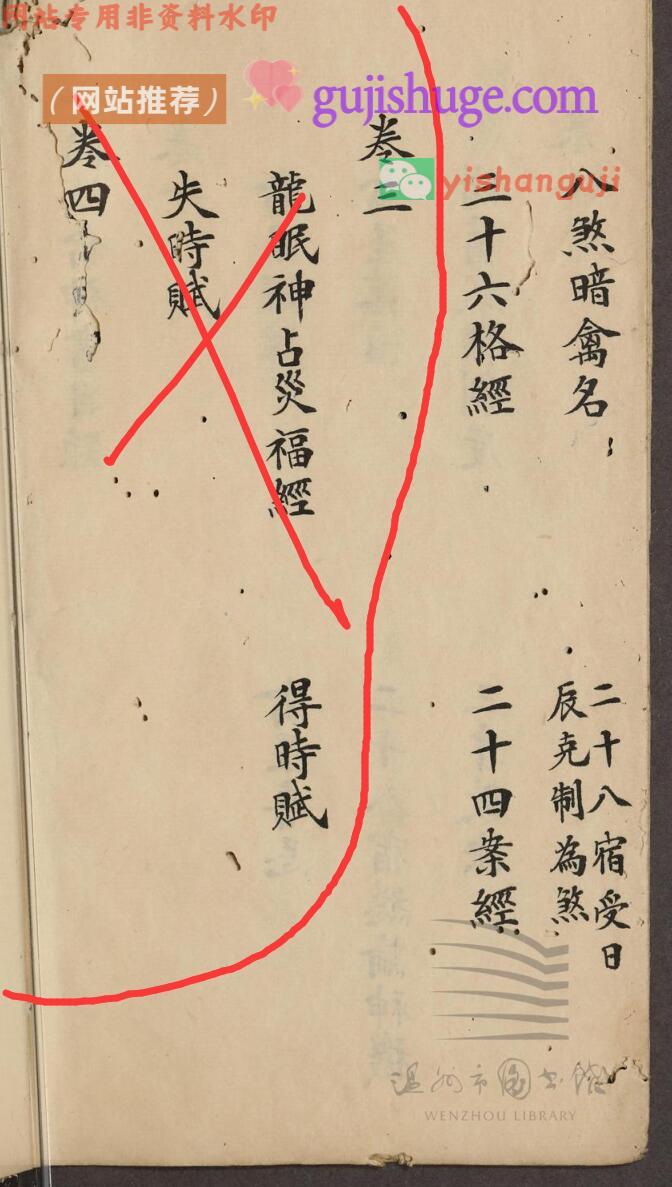 网站专用非资料水印
（网站推荐）
gujishuge.com
yishanguji
八煞暗禽名
二十八宿受日
辰克制為煞
三十六格經
二十四案經
卷三
龍眠神占災福經
得時賦
失時賦
卷四
温州市图书馆
WENZHOU LIBRARY